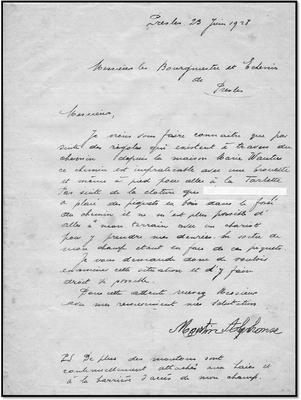 Presles 23 Juin 1928
Messieurs les Bourgmestre et Echevins
de
Presles
Messieurs,
Je viens vous faire connaitre que par
suite des rigoles qui existent à travers du
chemin depuis la maison Marie Wautier
ce chemin est impraticable avec une brouette
et même à pied pour aller à la Tarlette
Par suite de la cloture que
a placé des piquets en bois dans le fossé
du chemin il ne m'est plus possible d'
aller à mon terrain avec un chariot
pour y prendre mes denrées la sortie de
mon champ étant en face de ces piquets.
Je vous demande donc de vouloir
examiner cette situation et d'y faire
droit si possible
Dans cette attente recevez Messieurs
avec mes remerciements mes salutations
Martin Alphonse
P.S. De plus des moutons sont
continuellement attachés aux haies et
à la barrière d'accès de mon champ.